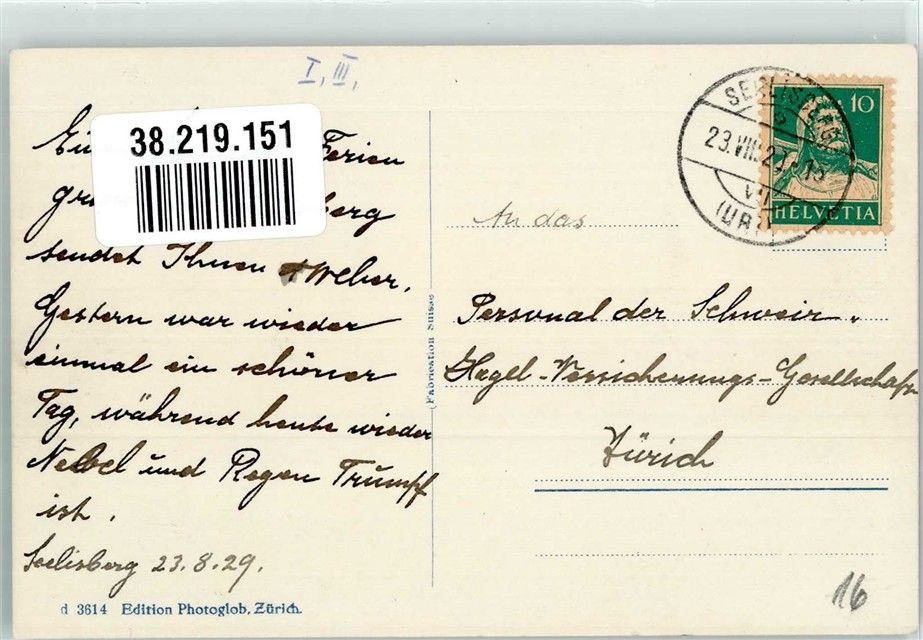 I, III,
38.219.151
Ferien
sendet Ihnen Weber.
Gestern war wieder
einmal ein schöner
Tag, während heute wieder
Nebel und Regen Trumpf
ist.
Seelisberg 23.8.29.
d 3614 Edition Photoglob, Zürich.
Fabrication Suisse
SEELISBERG
23.VIII.2
(URI)
10
HELVETIA
An das
Personal der Schweiz.
Hagel-Versicherungs-Gesellschaft
Zürich
16